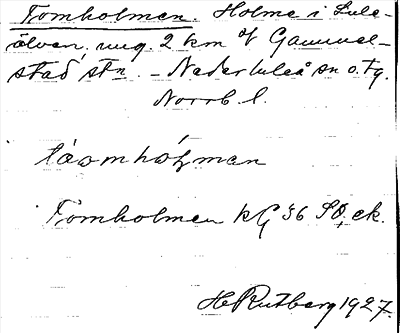 Tomholmen. Holme i Lule-
älven, ung. 2 km V Gammel-
stad stn. - Nederluleå sn o. tg.
Norrb. l.
Tomholmen kG 36 SO, ek.
H Rutberg 1927.